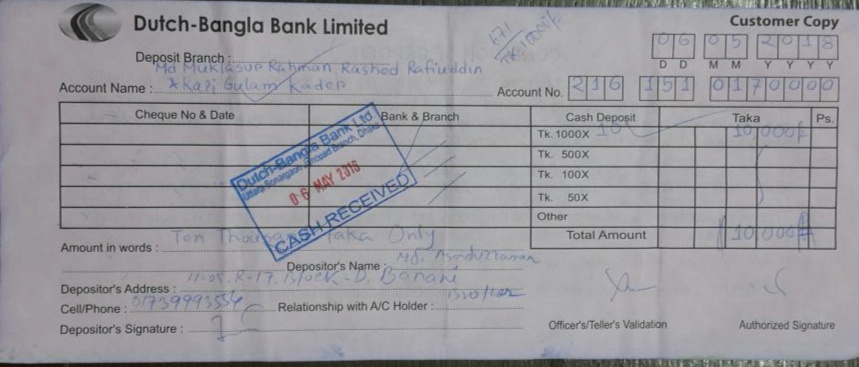 Dutch-Bangla Bank Limited
Customer Copy
671
TK:10000/=
06 05 2018
D D M M Y Y Y Y
Deposit Branch :
Md Muklasur Rahman, Rashed Rafiuddin
Account Name : *Kazi Gulam Kader
Account No. 216 151 0170000
Cheque No & Date Bank & Branch Cash Deposit Taka Ps.
Tk. 1000X 10 10,000/=
Tk. 500X
Tk. 100X
Tk. 50X
Other
Total Amount 10,000/=
Dutch-Bangla Bank Ltd
Dhaka
06 MAY 2018
CASH RECEIVED
Amount in words : Ten Thousand Taka Only
Depositor's Name : Md. Asaduzzaman
Depositor's Address : H-05, R-17, Block-D, Banani
Cell/Phone : Relationship with A/C Holder : Brother
Depositor's Signature :
Officer's/Teller's Validation
Authorized Signature